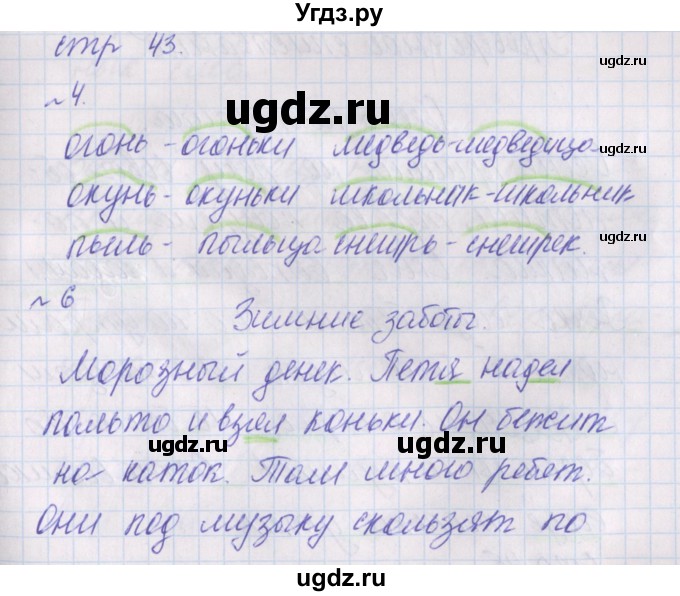 Угдз.ру
стр 43.
ugdz.ru
№4.
ugdz.ru
огонь - огоньки медведь-медведица
ugdz.ru
окунь - окуньки школьник - школьник
пыль - пыльца снегирь - снегирек.
ugdz.ru ugdz.ru
№6
Зимние заботы.
ugdz.ru
Морозный денек. Петя надел
пальто и взял коньки. Он бежит
ugdz.ru ugdz.ru
на каток. Там много ребят.
Они под музыку скользят по
ugdz.ru
ugdz.ru